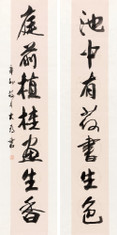 池中有荷書生色
庭前植桂畫生香